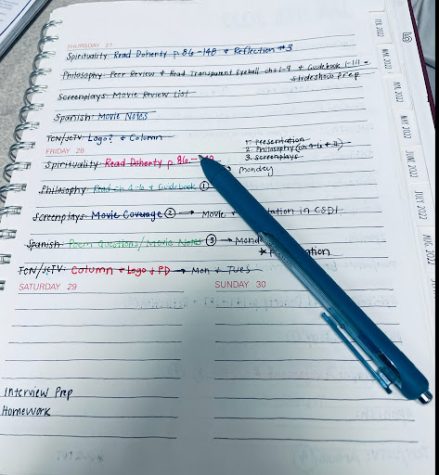 THURSDAY 27
Spirituality: Read Doherty p. 86-148 & Reflection #3
Philosophy: Peer Review & Read Transparent Eyeball ch 1-4 & Guidebook
Slideshow Prep
Screenplays: Movie Review List
Spanish: Movie Notes
TCN/JCTV: Logo? & Column
1. Presentation
2. Philosophy
3. Screenplays
FRIDAY 28
Spirituality: Read Doherty p. 86-148
Monday
Philosophy: Read ch & Guidebook ①
Screenplays: Movie Coverage ② → Movie in CSDI
Spanish: Poem Questions/Movie Notes ③ →
TCN/JCTV: Column + Logo + PD → Mon + Tues
SATURDAY 29
SUNDAY 30
Interview Prep
Homework
FEB. 2022
MAR. 2022
MAY 2022
JUNE 2022
JULY 2022